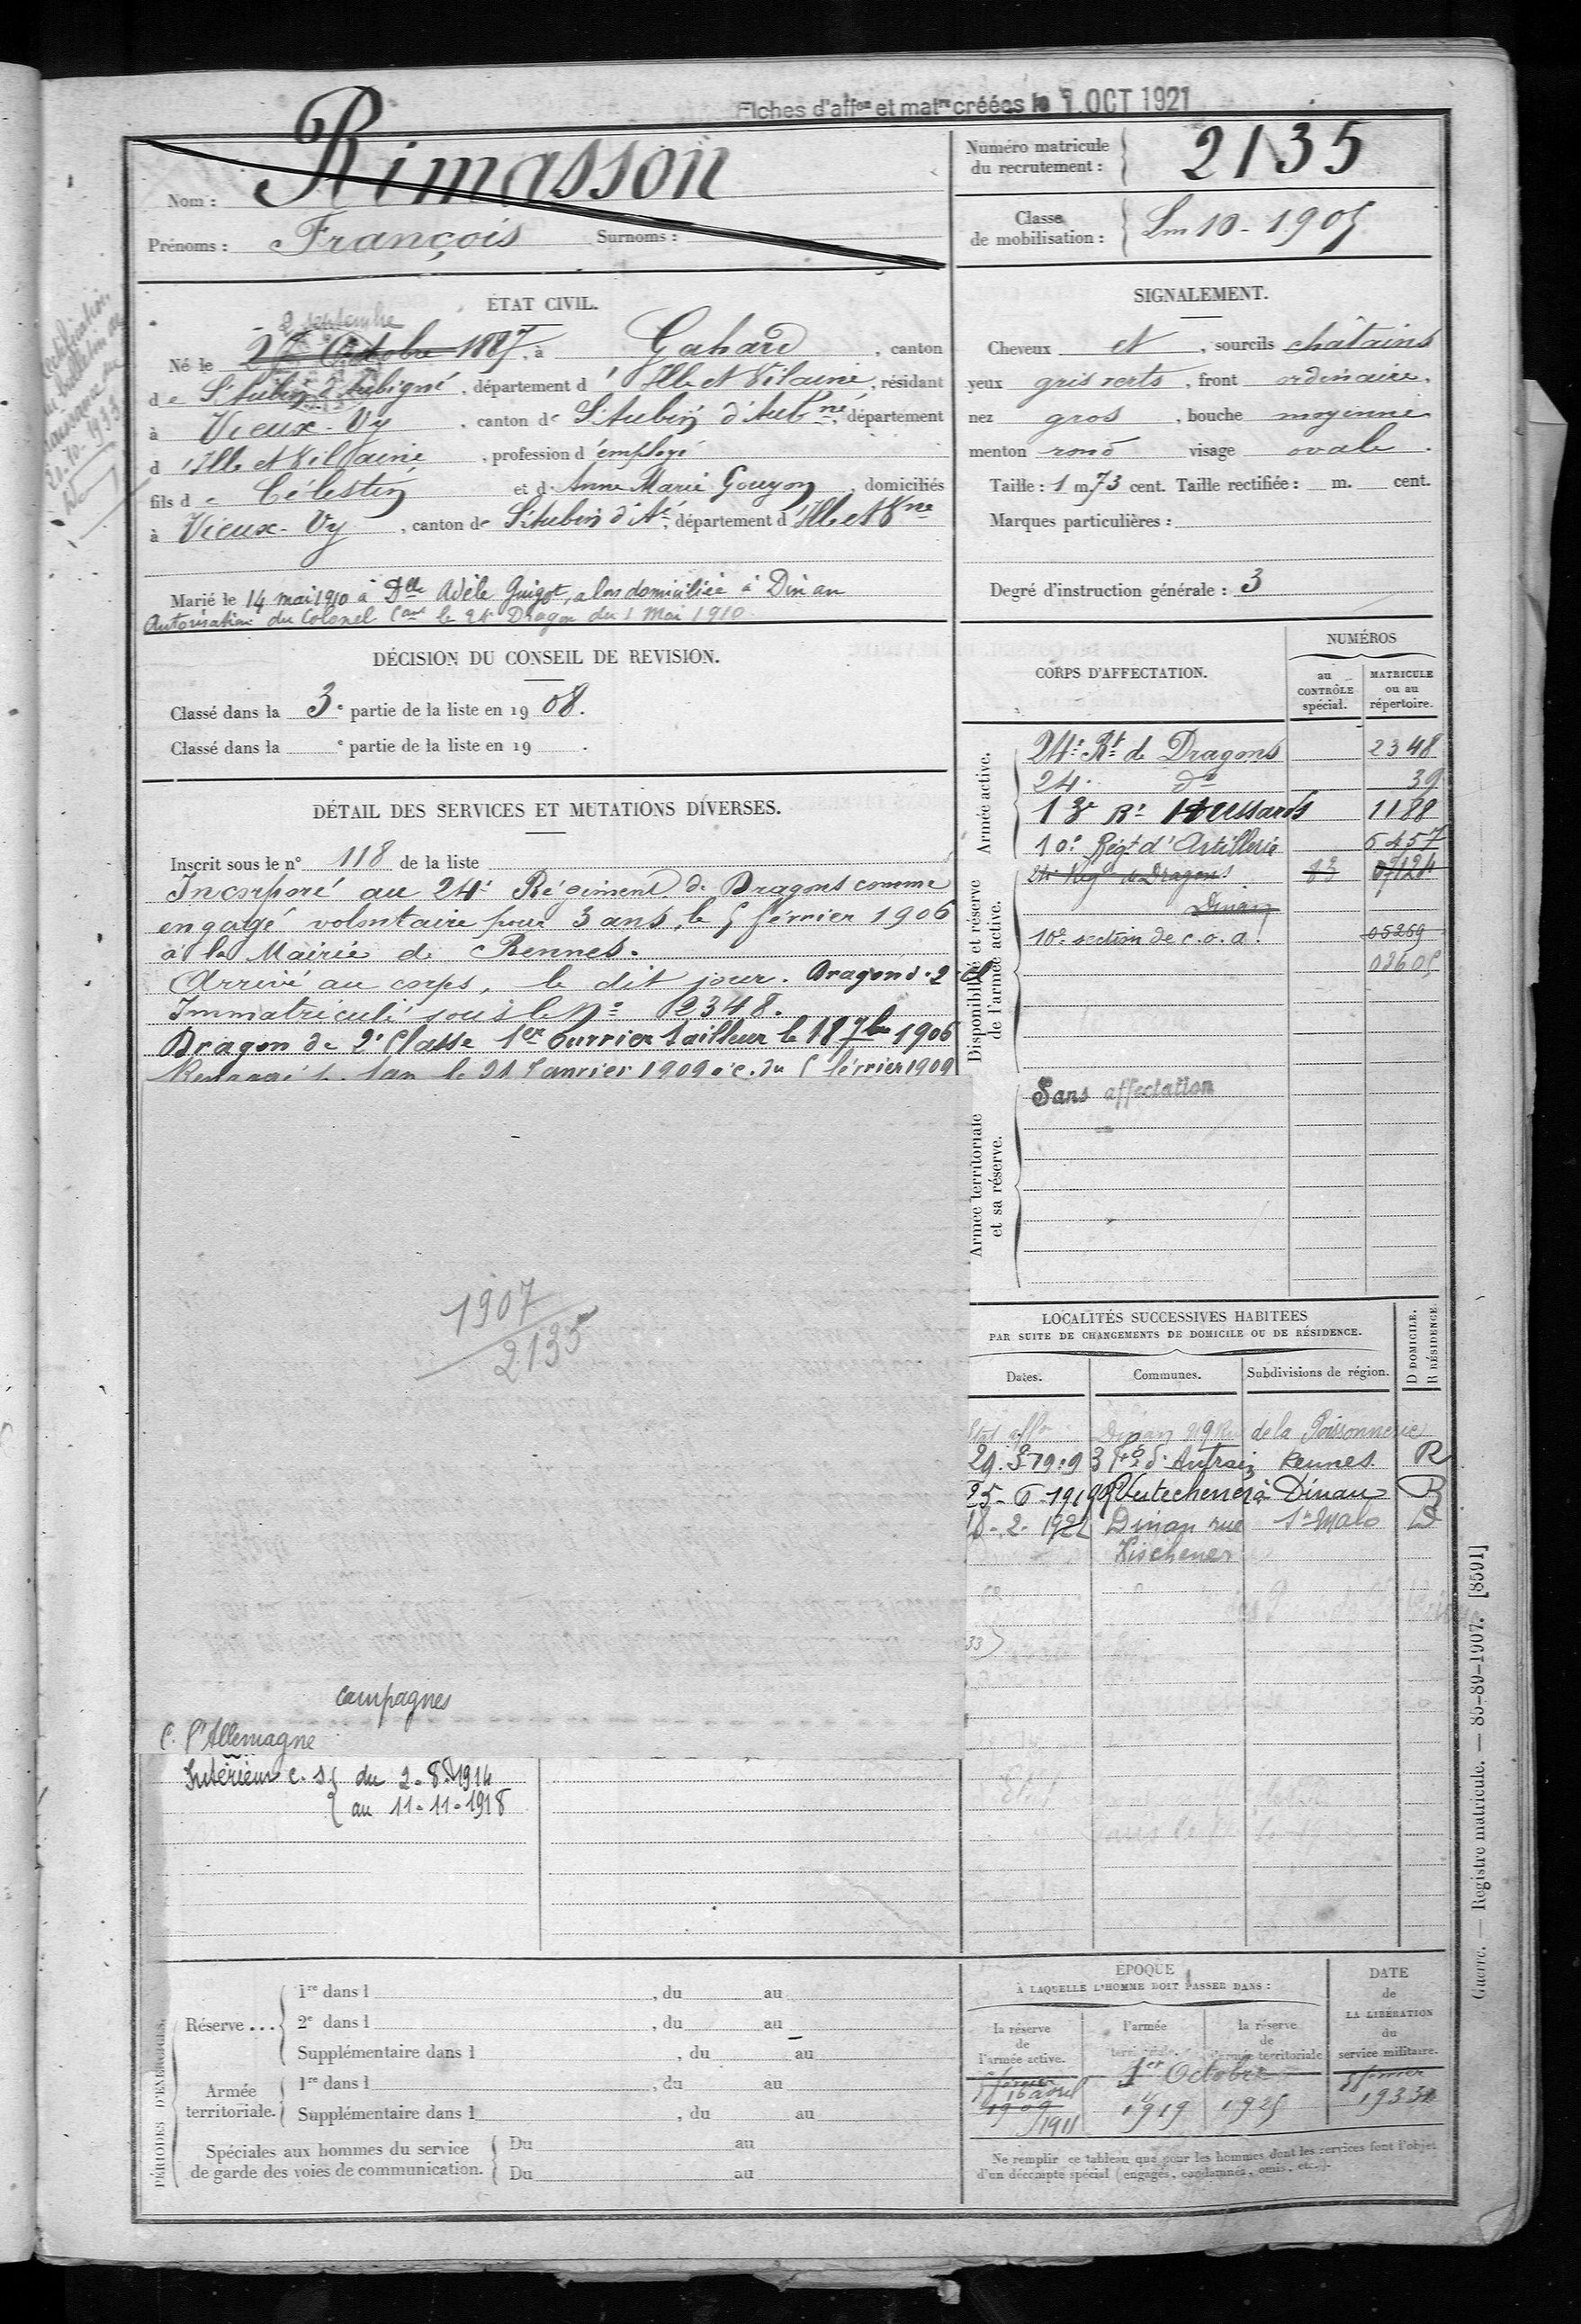 Fiches d'aff^on et mat^re créées le 1.OCT 1921
Nom : Rimasson
Prénoms : François Surnoms :
Numéro matricule du recrutement : 2135
Classe de mobilisation : Lm 10 - 1905
ÉTAT CIVIL.
2 septembre
Né le Octobre 1887, à Gahard, canton
de St Aubin d'Aubigné, département d'Ille et Vilaine, résidant
à Vieux-Vy, canton de St Aubin d'Aub^né, département
d'Ille et Vilaine, profession d'employé
fils de Célestin et d' Anne Marie Gouyon, domiciliés
à Vieux-Vy, canton de St Aubin d'A^é, département d'Ille et V^ne
Marié le 14 mai 1910 à D^elle Adèle Guigot, alors domiciliée à Dinan
Autorisation du Colonel C^ant le 24^e Dragon du 1 Mai 1910
SIGNALEMENT.
Cheveux et, sourcils châtains
yeux gris verts, front ordinaire,
nez gros, bouche moyenne
menton rond visage ovale.
Taille : 1 m. 73 cent. Taille rectifiée : m. cent.
Marques particulières :
Degré d'instruction générale : 3
DÉCISION DU CONSEIL DE REVISION.
Classé dans la 3^e partie de la liste en 1908.
Classé dans la ^e partie de la liste en 19 .
DÉTAIL DES SERVICES ET MUTATIONS DIVERSES.
Inscrit sous le n° 118 de la liste
Incorporé au 24^e Régiment de Dragons comme
engagé volontaire pour 3 ans, le 5 février 1906
à la Mairie de Rennes.
Arrivé au corps, le dit jour. Dragon d. 2 Cl
Immatriculé sous le N° 2348.
Dragon de 2^e Classe 1^er Ouvrier tailleur le 18 7bre 1906
Rengagé p. 1 an le 21 Janvier 1909 à c. du 5 février 1909
1907
2135
campagnes
C. l'Allemagne
Intérieur c. s. { du 2-8-1914
{ au 11-11-1918
CORPS D'AFFECTATION.
NUMÉROS
au CONTRÔLE spécial.
MATRICULE ou au répertoire.
Armée active.
24^e R^t de Dragons 2348
24^e d° 39
13^e R^t Hussards 1188
10^e Rég^t d'Artillerie 6457
Disponibilité et réserve de l'armée active.
24^e Rég^t de Dragons
Dinan
10^e section de c.o.a. 05269
03605
Armée territoriale et sa réserve.
Sans affectation
LOCALITÉS SUCCESSIVES HABITÉES
PAR SUITE DE CHANGEMENTS DE DOMICILE OU DE RÉSIDENCE.
Dates. Communes. Subdivisions de région. D DOMICILE. R RÉSIDENCE
Dinan de la Poissonnerie
3 F^g d'Antrain Rennes R
à Dinan
18-2-1922 Dinan rue St Malo D
Kischener
PÉRIODES D'EXERCICES.
Réserve...
1^re dans l , du au
2^e dans l , du au
Supplémentaire dans l , du au
Armée territoriale.
1^re dans l , du au
Supplémentaire dans l , du au
Spéciales aux hommes du service de garde des voies de communication.
Du au
Du au
ÉPOQUE
À LAQUELLE L'HOMME DOIT PASSER DANS :
la réserve de l'armée active. l'armée territoriale. la réserve de l'armée territoriale
DATE de LA LIBÉRATION du service militaire.
1^er Octobre
16 avril 1909 1911
1919 1925
Ne remplir ce tableau que pour les hommes dont les services font l'objet
d'un décompte spécial (engagés, condamnés, omis, etc.).
Guerre. — Registre matricule. — 85-89-1907. [8591]